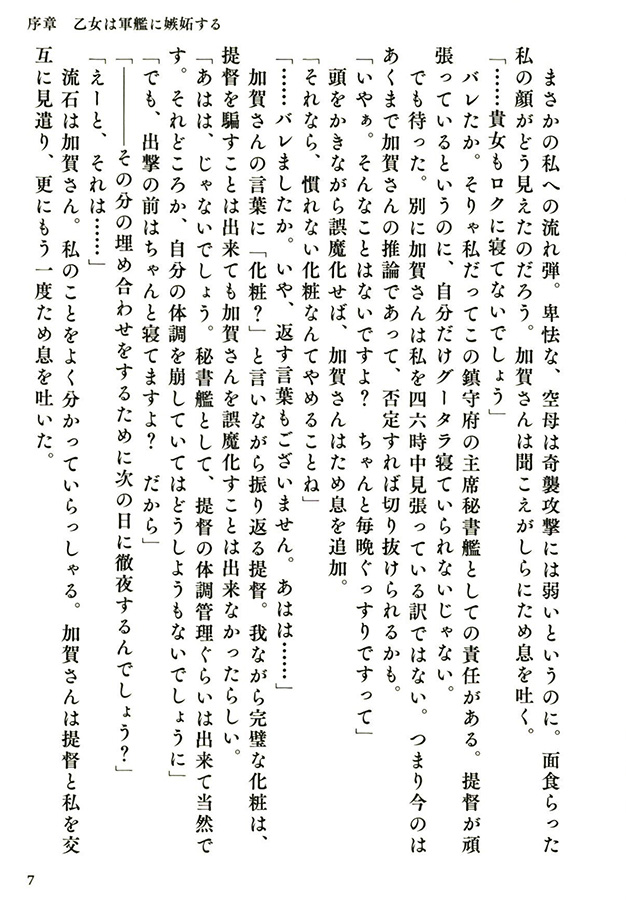 序章　乙女は軍艦に嫉妬する
　まさかの私への流れ弾。卑怯な、空母は奇襲攻撃には弱いというのに。面食らった
私の顔がどう見えたのだろう。加賀さんは聞こえがしらにため息を吐く。
「……貴女もロクに寝てないでしょう」
　バレたか。そりゃ私だってこの鎮守府の主席秘書艦としての責任がある。提督が頑
張っているというのに、自分だけグータラ寝ていられないじゃない。
　でも待った。別に加賀さんは私を四六時中見張っている訳ではない。つまり今のは
あくまで加賀さんの推論であって、否定すれば切り抜けられるかも。
「いやぁ。そんなことはないですよ？　ちゃんと毎晩ぐっすりですって」
　頭をかきながら誤魔化せば、加賀さんはため息を追加。
「それなら、慣れない化粧なんてやめることね」
「……バレましたか。いや、返す言葉もございません。あはは……」
　加賀さんの言葉に「化粧？」と言いながら振り返る提督。我ながら完璧な化粧は、
提督を騙すことは出来ても加賀さんを誤魔化すことは出来なかったらしい。
「あはは、じゃないでしょう。秘書艦として、提督の体調管理ぐらいは出来て当然で
す。それどころか、自分の体調を崩していてはどうしようもないでしょうに」
「でも、出撃の前はちゃんと寝てますよ？　だから」
「――――その分の埋め合わせをするために次の日に徹夜するんでしょう？」
「えーと、それは……」
　流石は加賀さん。私のことをよく分かっていらっしゃる。加賀さんは提督と私を交
互に見遣り、更にもう一度ため息を吐いた。
7